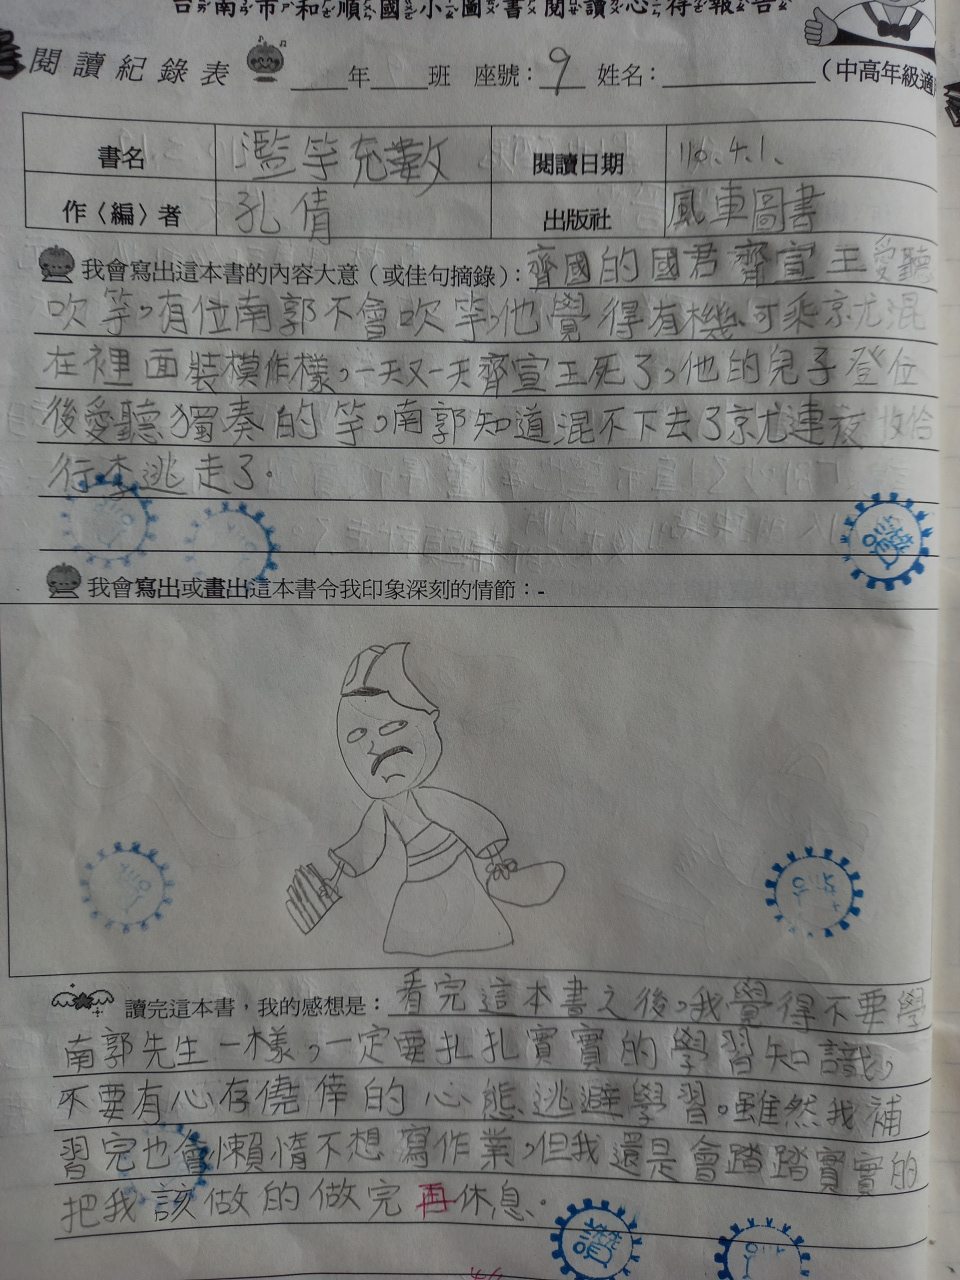 台南市和順國小圖書閱讀心得報告
閱讀紀錄表 ____年____班 座號：9 姓名：__________（中高年級適
書名 濫竽充數 閱讀日期 110.4.1.
作〈編〉者 孔倩 出版社 風車圖書
我會寫出這本書的內容大意（或佳句摘錄）：齊國的國君齊宣王愛聽
吹竽，有位南郭不會吹竽，他覺得有機可乘就混
在裡面裝模作樣，一天又一天齊宣王死了，他的兒子登位
後愛聽獨奏的竽，南郭知道混不下去了就連夜收拾
行李逃走了。
我會寫出或畫出這本書令我印象深刻的情節：-
讀完這本書，我的感想是：看完這本書之後，我覺得不要學
南郭先生一樣，一定要扎扎實實的學習知識，
不要有心存僥倖的心態逃避學習。雖然我補
習完也會懶惰不想寫作業，但我還是會踏踏實實的
把我該做的做完再休息.
讚